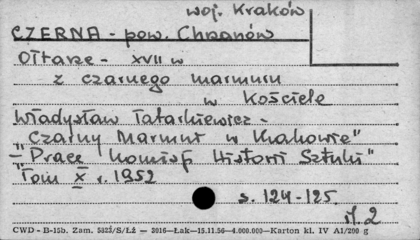 woj. Kraków
CZERNA - pow. Chrzanów
Ołtarze - XVII w
z czarnego marmuru
w Kościele
Władysław Tatarkiewicz -
"Czarny Marmur w Krakowie"
- "Prace Komisji Historii Sztuki"
Tom X r. 1952
s. 124-125.
il. 2
CWD - B-15b. Zam. 5523/S/Łż — 3016—Łak—15.11.50—4.000.000—Karton kl. IV A1/200 g